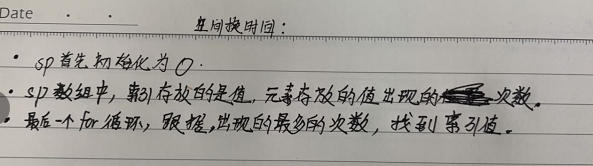 Date
空间换时间:
• sp首先初始化为0.
• sp数组中,索引存放的是值,元素存放的值出现的次数。
• 最后一个for循环,跟据,出现的最多的次数,找到索引值。